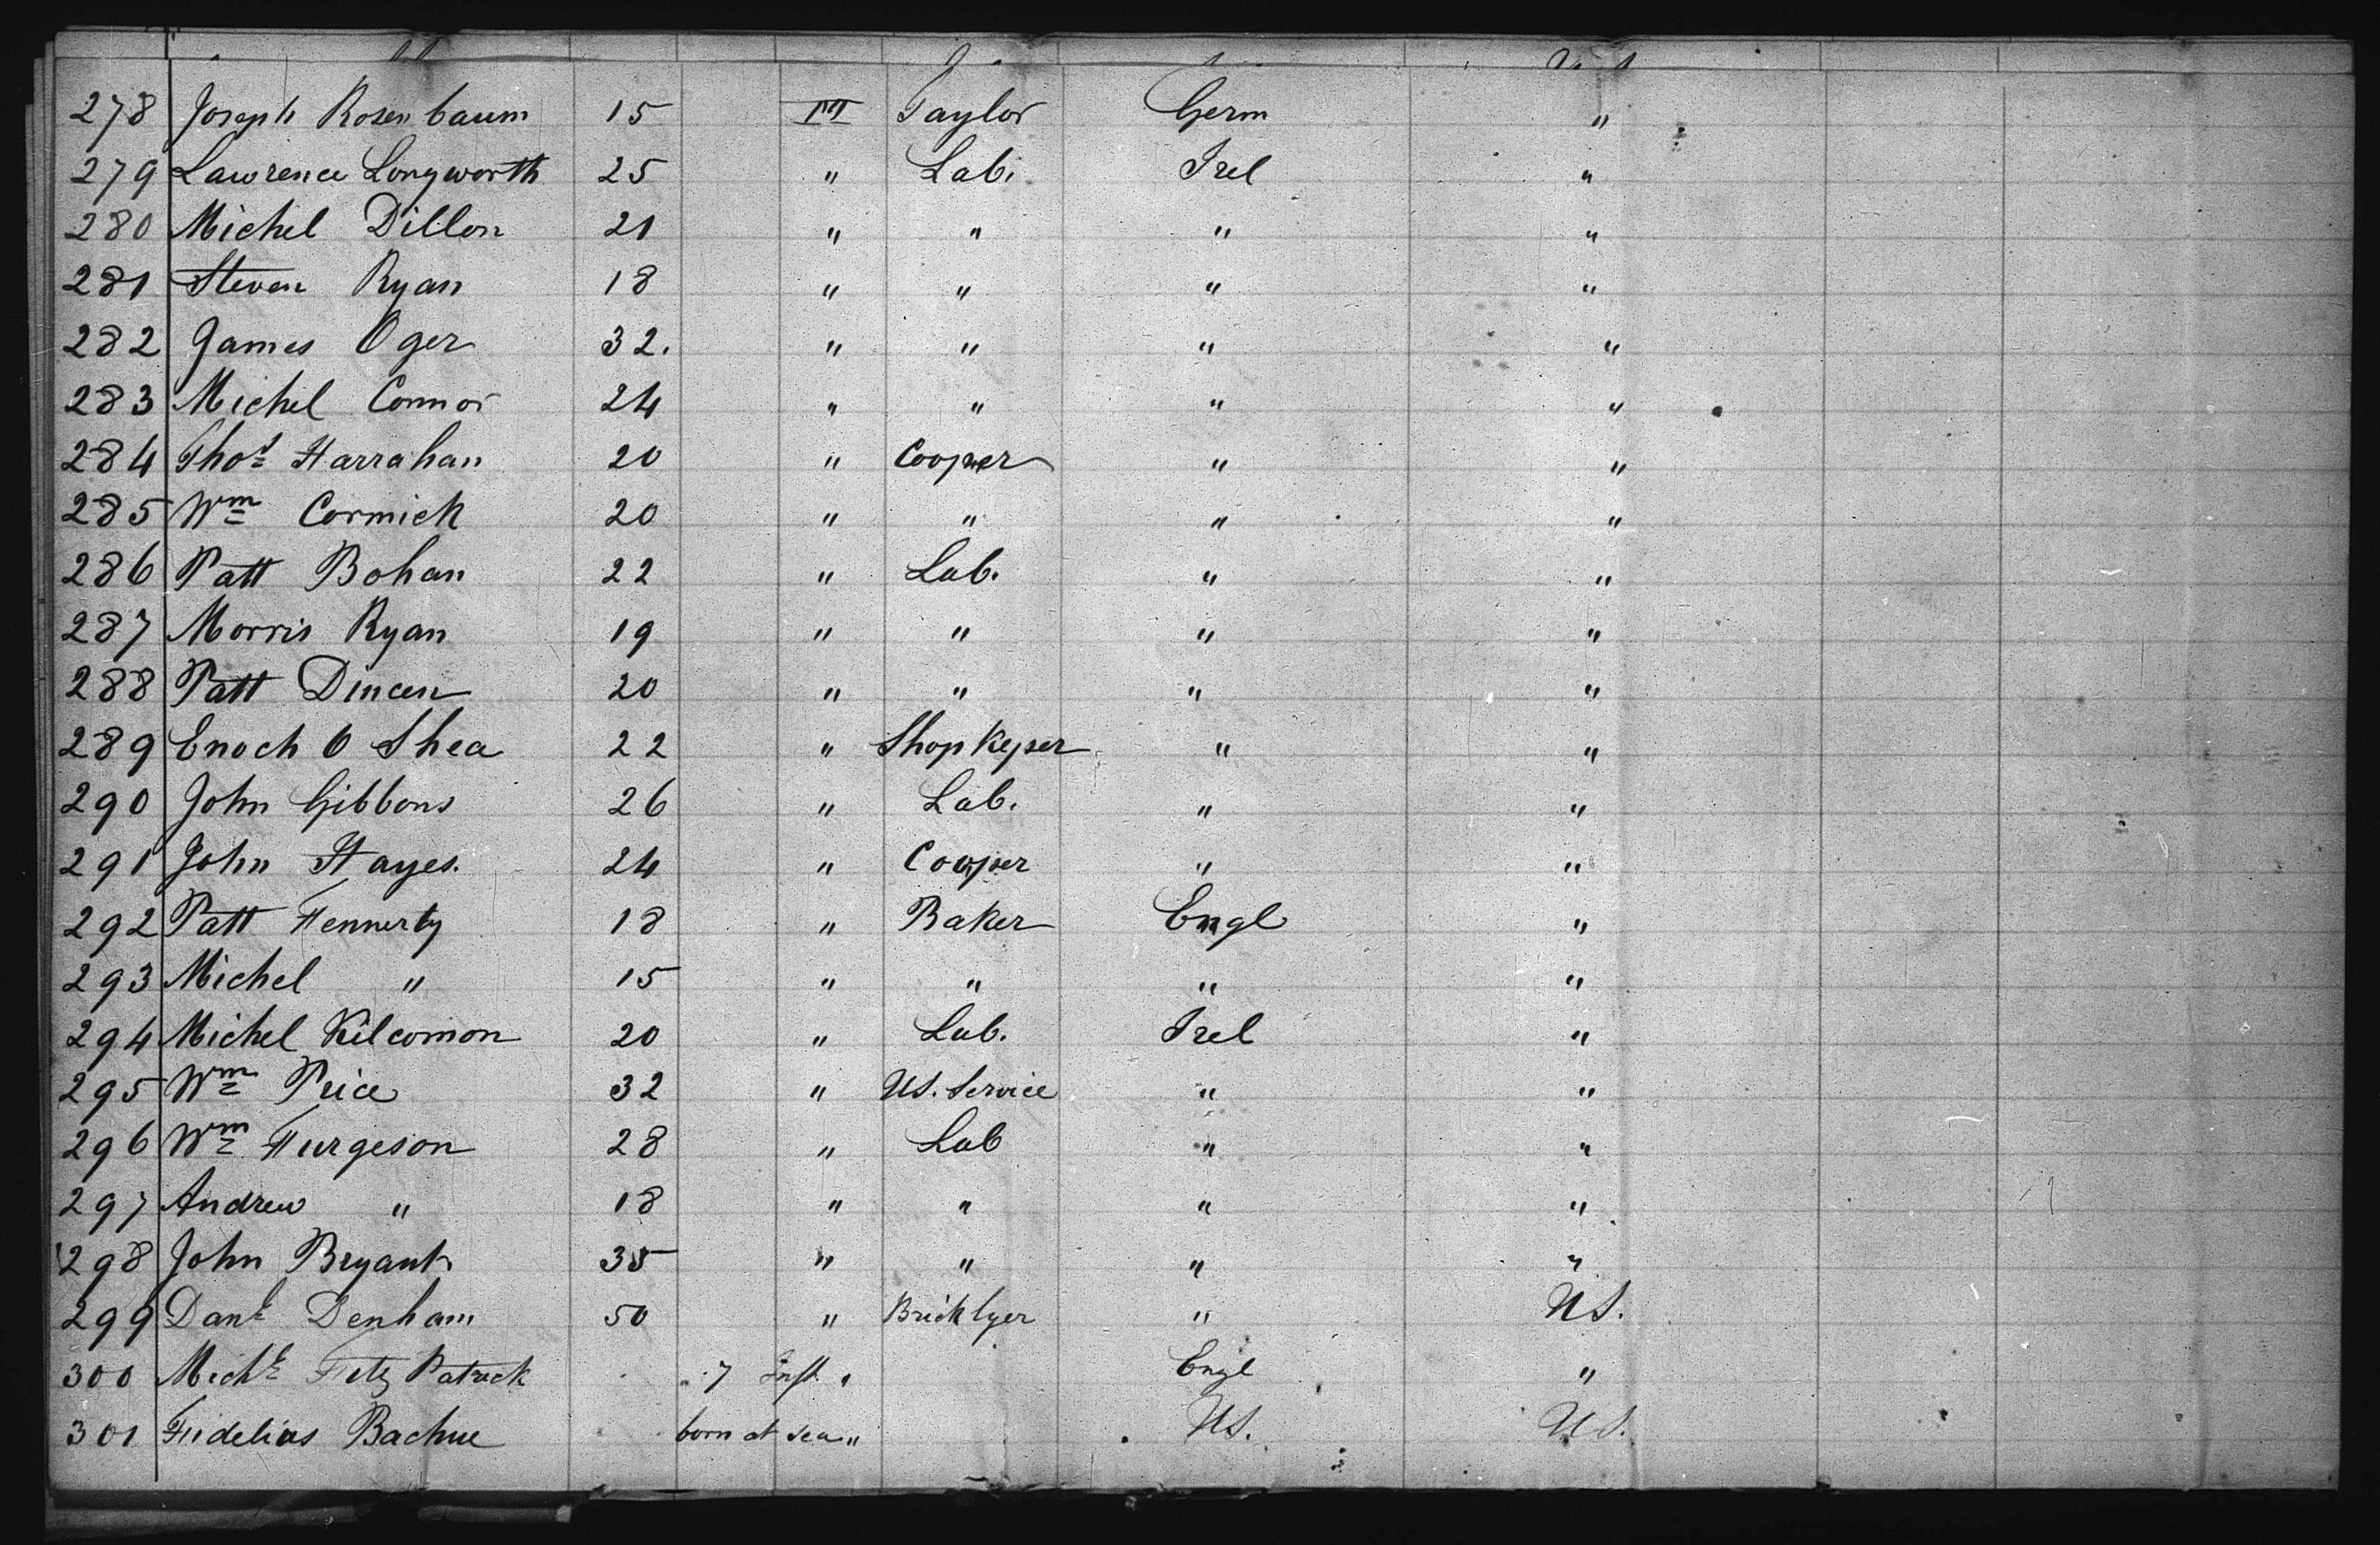 278 Joseph Rosenbaum 15 m Taylor Germ "
279 Lawrence Longworth 25 " Lab. Irel "
280 Michel Dillon 21 " " " "
281 Steven Ryan 18 " " " "
282 James Oger 32. " " " "
283 Michel Connor 24 " " " "
284 Thos Harrahan 20 " Cooper " "
285 Wm Cormick 20 " " " "
286 Patt Bohan 22 " Lab. " "
287 Morris Ryan 19 " " " "
288 Patt Dincen 20 " " " "
289 Enoch O Shea 22 " Shop Keper " "
290 John Gibbons 26 " Lab. " "
291 John Hayes. 24 " Cooper " "
292 Patt Fennerty 18 " Baker Engl "
293 Michel " 15 " " " "
294 Michel Kilcomon 20 " Lab. Irel "
295 Wm Price 32 " US. Service " "
296 Wm Furgeson 28 " Lab " "
297 Andrew " 18 " " " "
298 John Bryant 35 " " " "
299 Danl Denham 50 " Bricklyer " US.
300 Michl Fitz Patrick 7 Inft. " Engl "
301 Fidelius Bachue born at sea " US. US.